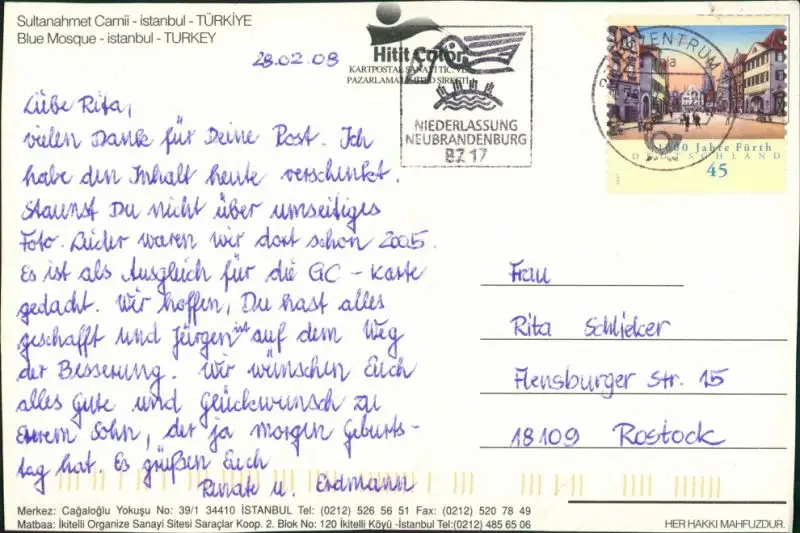 Sultanahmet Camii - istanbul - TÜRKİYE
Blue Mosque - istanbul - TURKEY
Hitit Color
KARTPOSTAL SANAYİ TİC. VE
PAZARLAMA LİMİTED ŞİRKETİ
28.02.08
Liebe Rita,
vielen Dank für Deine Post. Ich
habe den Inhalt heute verschenkt.
Staunst Du nicht über umseitiges
Foto. Leider waren wir dort schon 2005.
Es ist als Ausgleich für die GC - Karte
gedacht. Wir hoffen, Du hast alles
geschafft und Jürgen ist auf dem Weg
der Besserung. Wir wünschen Euch
alles Gute und Glückwunsch zu
Eurem Sohn, der ja morgen Geburts-
tag hat. Es grüßen Euch
Renate u. Erdmann
NIEDERLASSUNG
NEUBRANDENBURG
BZ 17
BRIEFZENTRUM
1000 Jahre Fürth
DEUTSCHLAND
45
Frau
Rita Schlieker
Flensburger Str. 15
18109 Rostock
Merkez: Cağaloğlu Yokuşu No: 39/1 34410 İSTANBUL Tel: (0212) 526 56 51 Fax: (0212) 520 78 49
Matbaa: İkitelli Organize Sanayi Sitesi Saraçlar Koop. 2. Blok No: 120 İkitelli Köyü -İstanbul Tel:(0212) 485 65 06
HER HAKKI MAHFUZDUR.